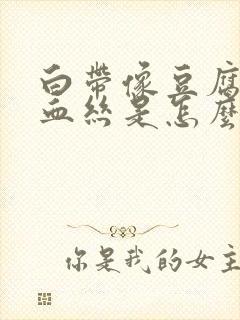 白带像豆腐
血丝是怎麼
你是我的女主